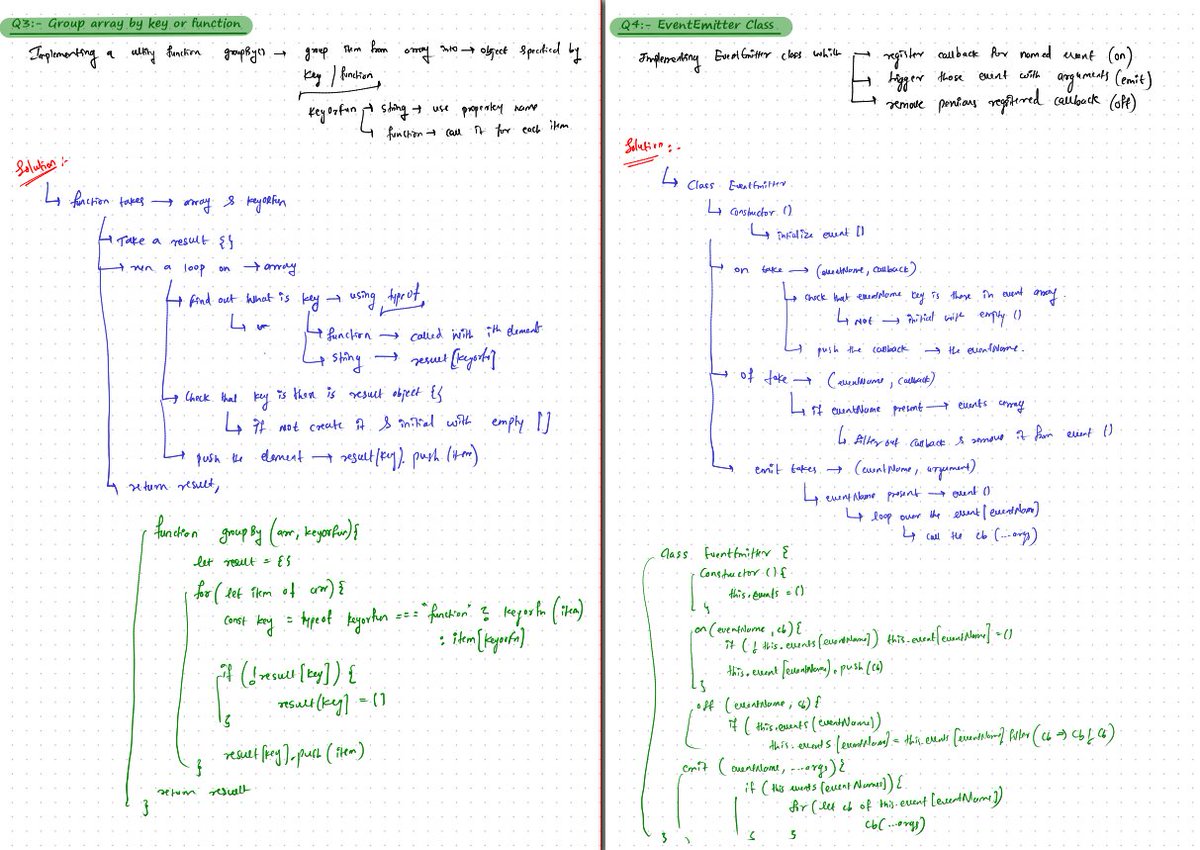 Q3:- Group array by key or function
Implementing a utility function groupBy() → group item from array into → object specified by
key / function
KeyorFun → string → use property name
function → call it for each item
Solution:-
function takes → array & keyorfun
Take a result {}
run a loop on → array
find out what is key → using typeof
function → called with ith element
string → result[keyorfn]
check that key is there is result object {}
if not create it & initial with empty []
push the element → result[key].push(item)
return result,
function groupBy (arr, keyorfun){
let result = {}
for(let item of arr){
const key = typeof keyorfun === "function" ? keyorfn (item)
: item[keyorfn]
if (!result[key]) {
result[key] = []
}
result[key].push(item)
}
return result
}
Q4:- EventEmitter Class
Implementing EventEmitter class which → register callback for named event (on)
trigger those event with arguments (emit)
remove previous registered callback (off)
Solution:-
Class EventEmitter
Constructor ()
initialize event []
on take → (eventName, callback)
check that eventName key is there in event array.
Not → initial with empty ()
push the callback → the eventName.
of take → (eventName, callback)
if eventName present → events array
filter out callback & remove it from event ()
emit takes → (eventName, argument)
eventName present → event ()
loop over the event[eventName]
call the cb (...args)
class EventEmitter {
Constructor () {
this.events = ()
}
on(eventName, cb) {
if (! this.events[eventName]) this.event[eventName] = ()
this.event[eventName].push(cb)
}
off (eventName, cb) {
if ( this.events (eventName))
this.events [eventName] = this.events [eventName] filter ( cb => cb
emit ( eventName, ...args) {
if ( this events [event Names]) {
for ( let cb of this.event [eventName])
cb(...args)
} }
} }